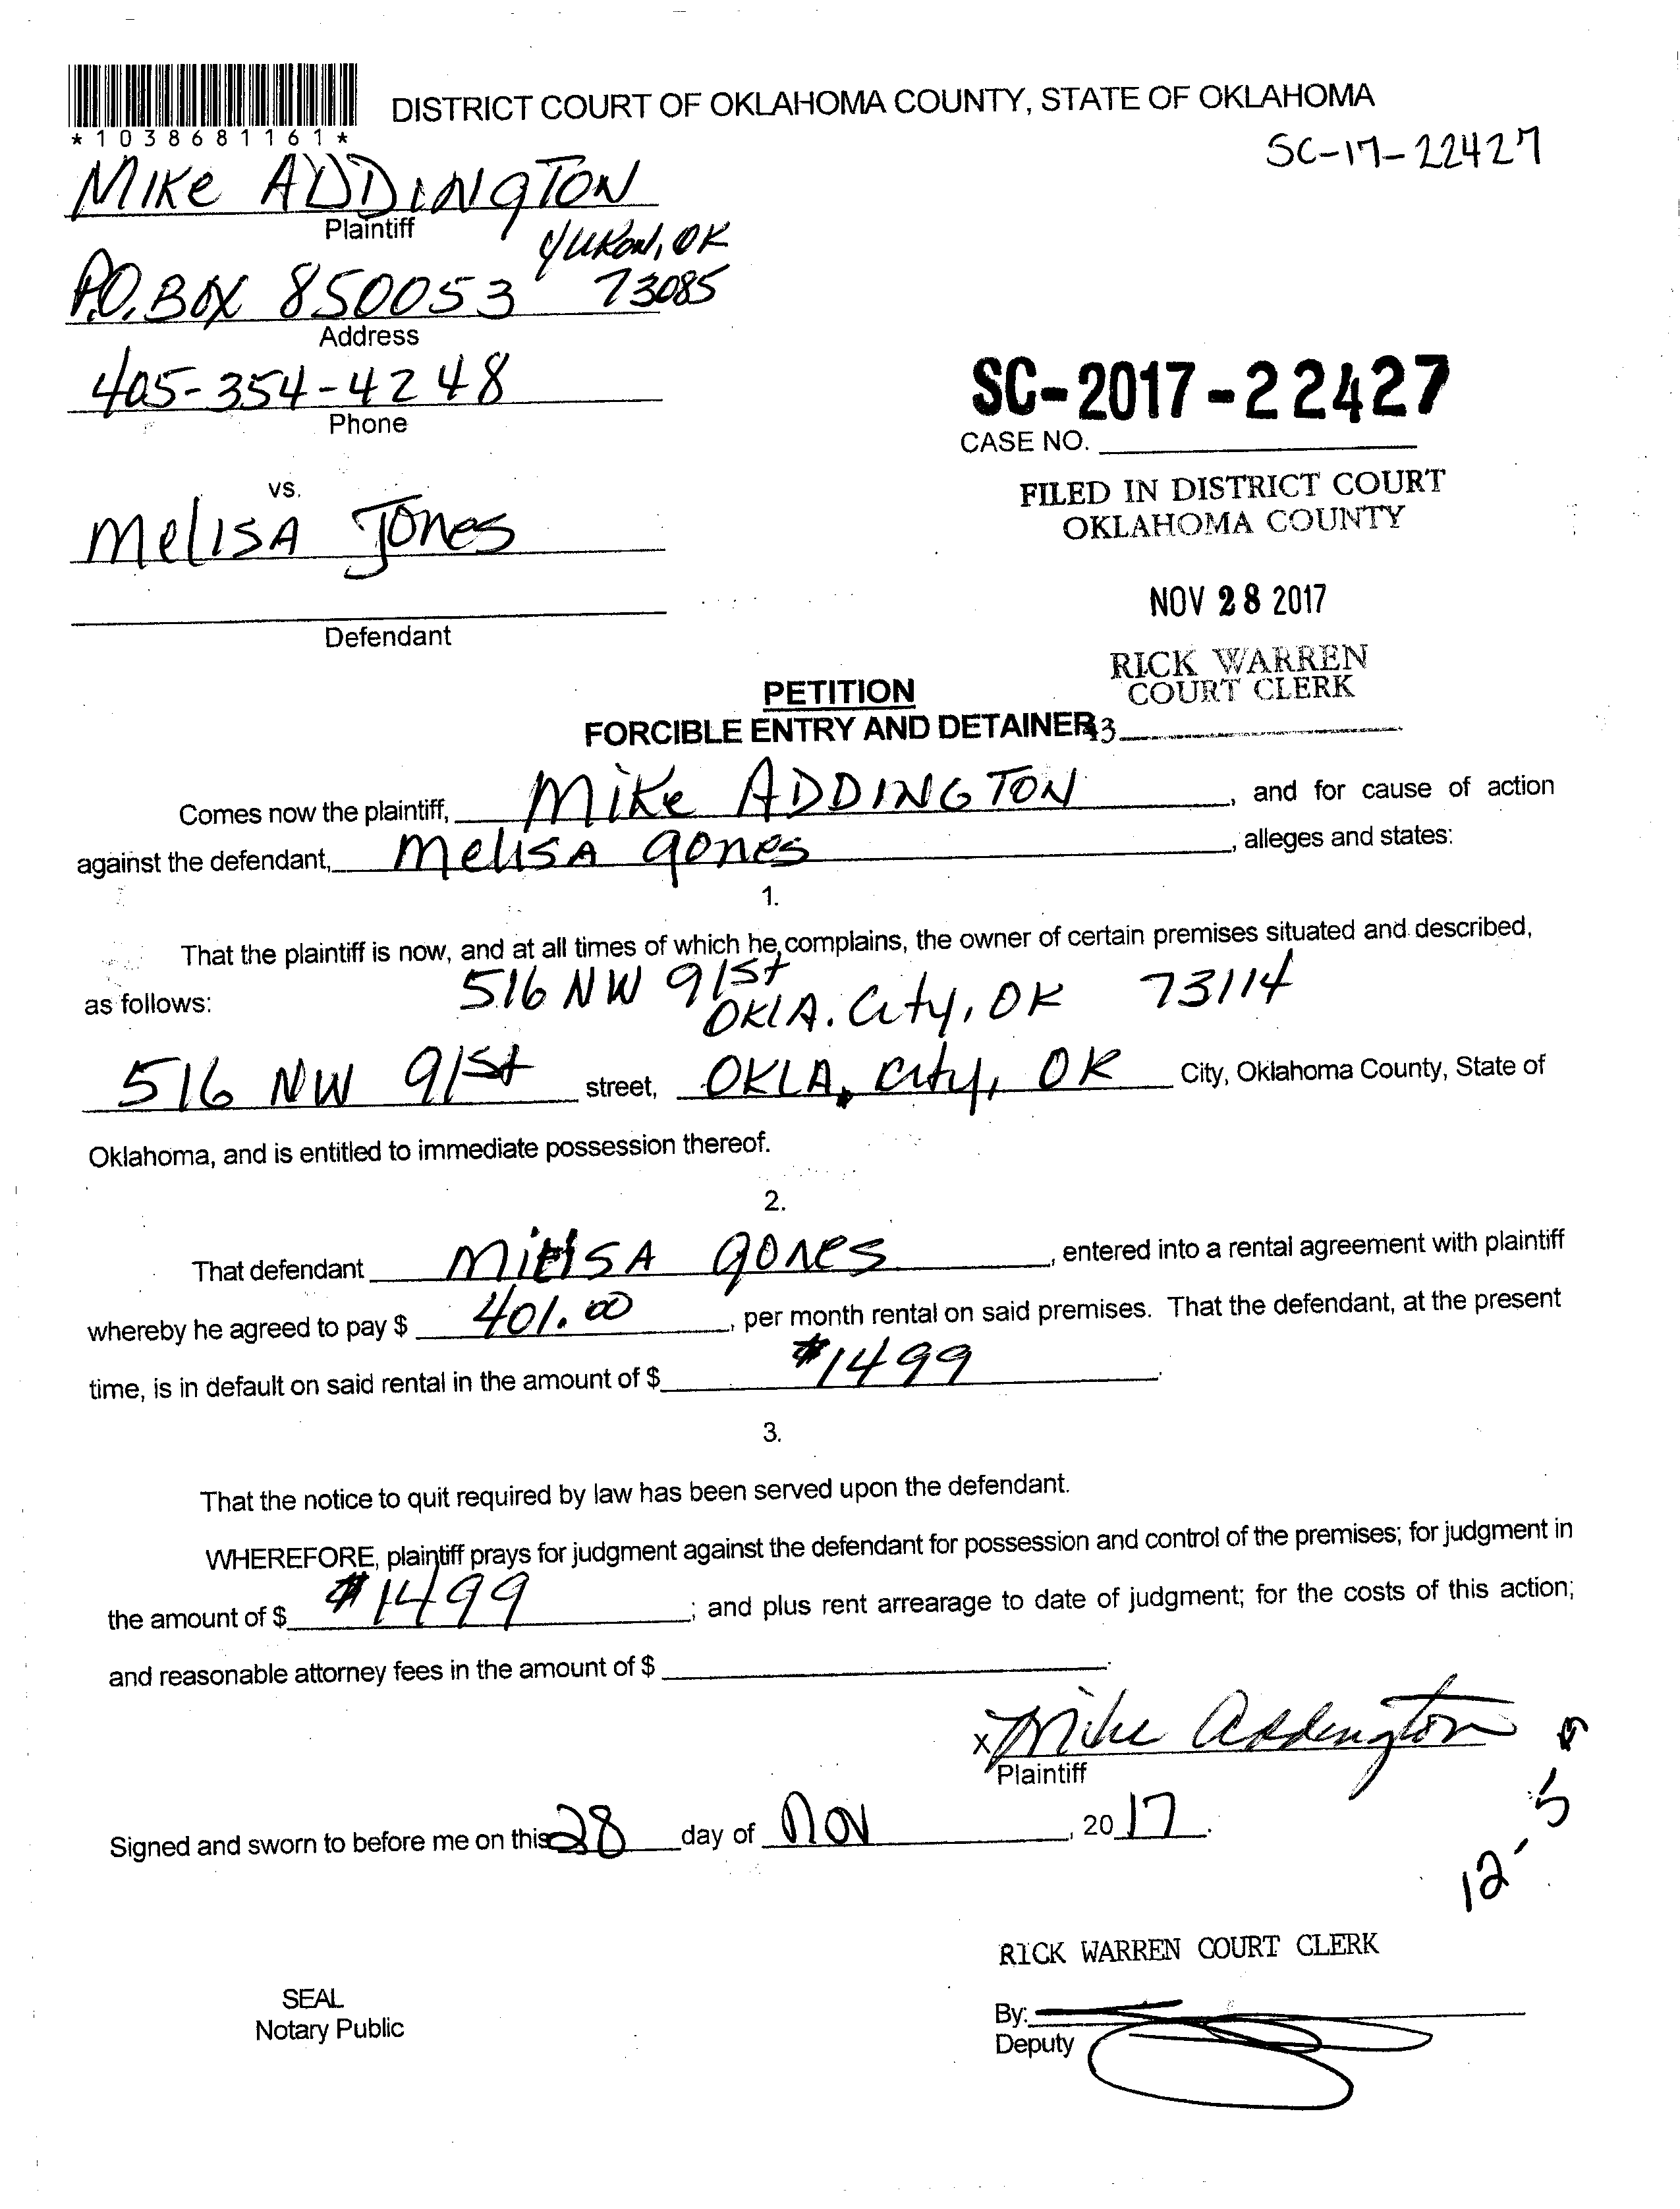 DISTRICT COURT OF OKLAHOMA COUNTY, STATE OF OKLAHOMA
*1038681161*
SC-17-22427
MIKe ADDINGTON
Plaintiff
Yukon, OK
P.O. BOX 850053 73085
Address
405-354-4248
Phone
SC-2017-22427
CASE NO.
vs.
MelISA Jones
FILED IN DISTRICT COURT
OKLAHOMA COUNTY
NOV 28 2017
Defendant
RICK WARREN
COURT CLERK
PETITION
FORCIBLE ENTRY AND DETAINER
Comes now the plaintiff, MIKe ADDINGTON, and for cause of action
against the defendant, MelISA Jones, alleges and states:
1.
That the plaintiff is now, and at all times of which he complains, the owner of certain premises situated and described,
as follows: 516 NW 91st
OKLA. City, OK 73114
516 NW 91st street, OKLA. City, OK City, Oklahoma County, State of
Oklahoma, and is entitled to immediate possession thereof.
2.
That defendant Jones, entered into a rental agreement with plaintiff
whereby he agreed to pay $ 401.00, per month rental on said premises. That the defendant, at the present
time, is in default on said rental in the amount of $ $1499.
3.
That the notice to quit required by law has been served upon the defendant.
WHEREFORE, plaintiff prays for judgment against the defendant for possession and control of the premises; for judgment in
the amount of $ $1499; and plus rent arrearage to date of judgment; for the costs of this action;
and reasonable attorney fees in the amount of $ .
x Mike Addington
Plaintiff
Signed and sworn to before me on this 28 day of NOV, 2017.
12-5
RICK WARREN COURT CLERK
SEAL
Notary Public
By:
Deputy